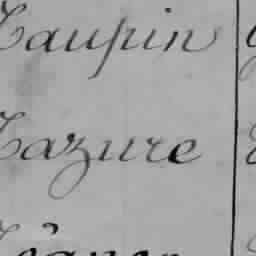 Taupin
Tazure